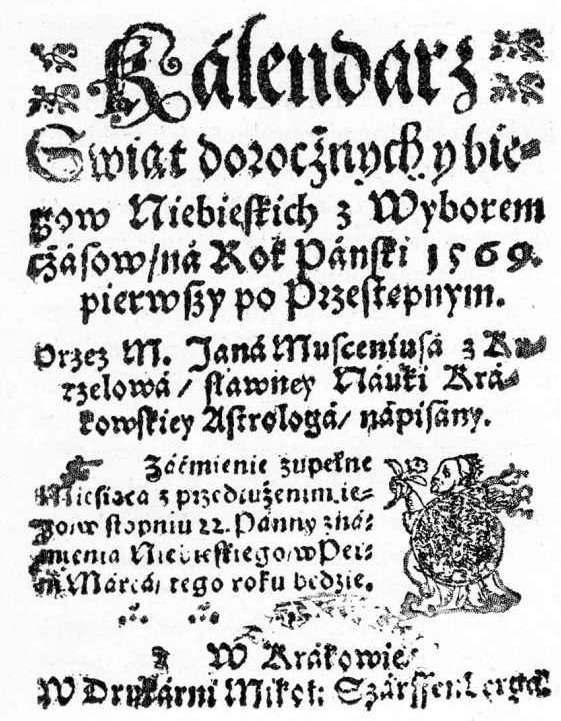 Kálendarz
Swiąt dorocżnych y bie-
gow Niebieskich z Wyborem
cżásow/ ná Rok Pánski 1569.
pierwszy po Przestępnym.
Przez M. Janá Musceniusá z Ku-
rzelowá/ sławney Náuki Krá-
kowskiey Astrologá/ nápisány.
Záćmienie zupełne
Miesiąca z przedłużenim ie-
go/ w stopniu 22. Pánny zná-
mienia Niebieskiego/ w Per-
Márcá/ tego roku będzie.
W Krákowie
W Drukárni Mikoł: Szárffenbergá.